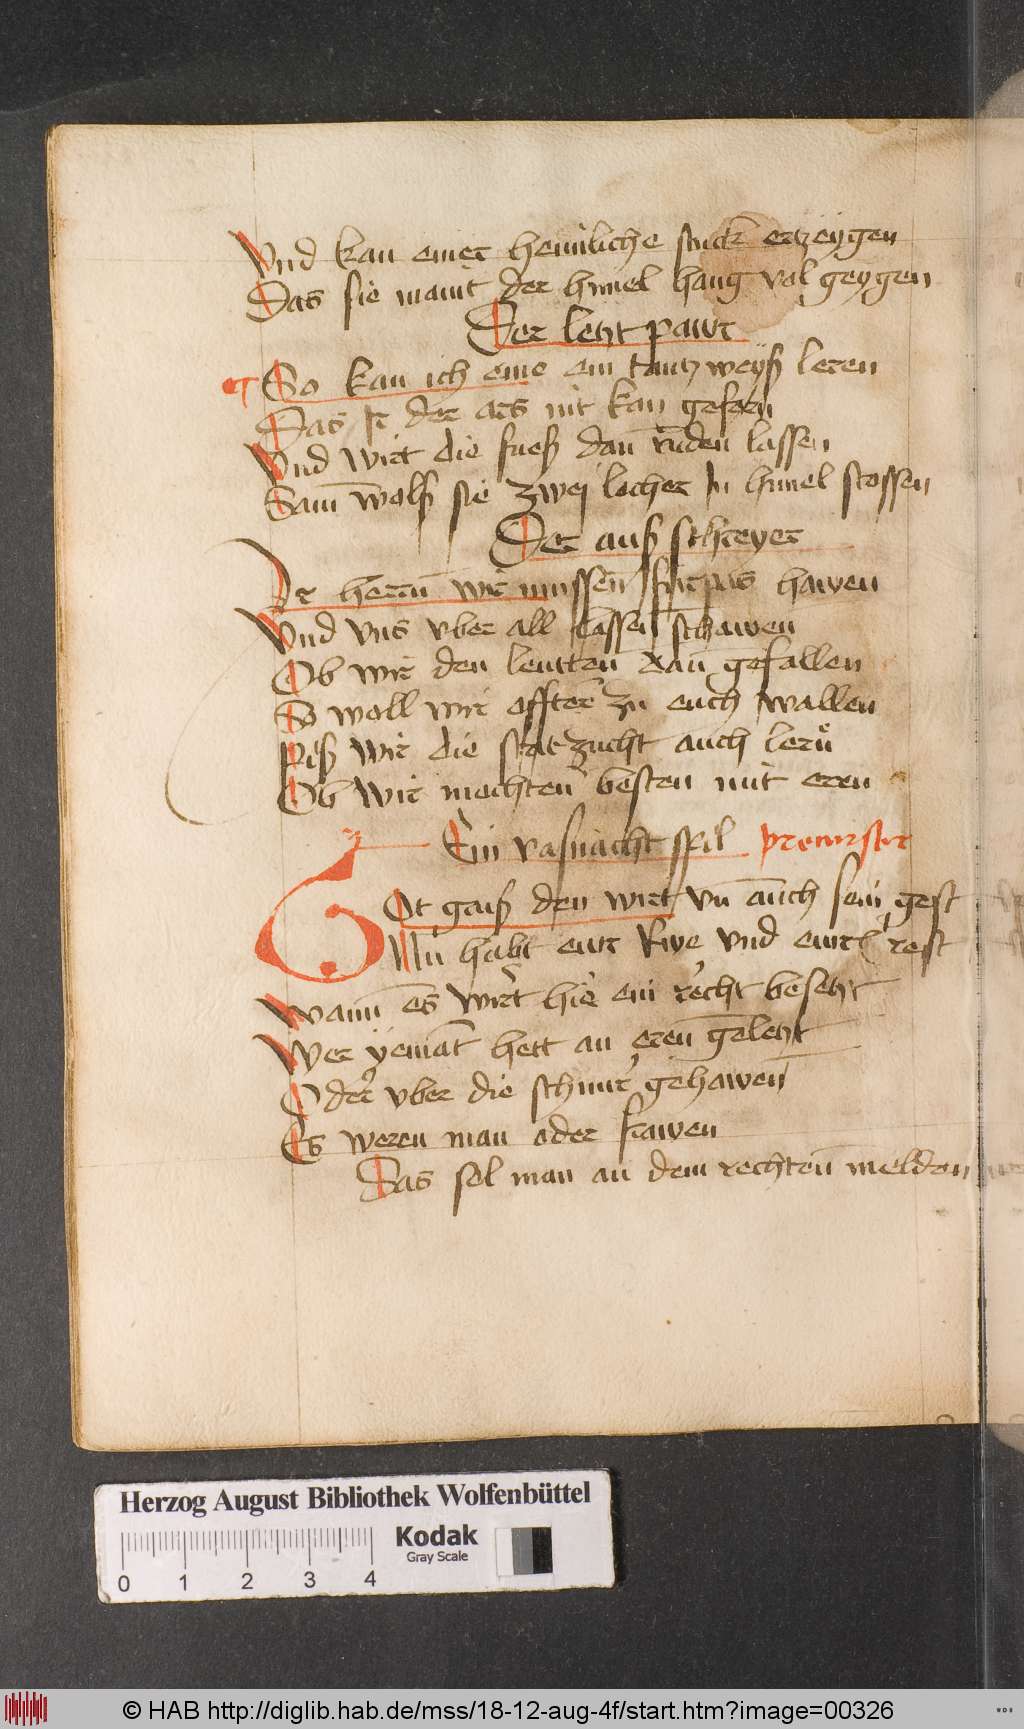 Vnd kan einer heimliche stuck ertzeygen
Das sie maint der himel hang vol geygen
Der letzt pawr
So kan ich eine ein tantz weyß leren
Das ir der ars nit kan geforn
Vnd wirt die fueß dan ruden lassen
Sam wolß sie zwei locher In himel stossen
Der auß schreyer
Ir herrn wir mussen furpas hawen
Vnd vns vber all lassen schawen
Ob wir den leutten dan gefallen
So woll wir offter zu euch wallen
Piß wir die stat zucht auch lern
Ob wir mochten besten mit eren
Ein vasnacht spil precursor
Got gruß den wirt vn auch sein gest
Nu habt eur Rwe vnd eurr rest
Wann es wirt hie ein recht besetzt
Wer yemat hett an eren geletzt
Oder vber die schnur gehawen
Es weren man oder frawen
Das sol man an dem rechten melden
Herzog August Bibliothek Wolfenbüttel
Kodak
Gray Scale
0 1 2 3 4
© HAB http://diglib.hab.de/mss/18-12-aug-4f/start.htm?image=00326